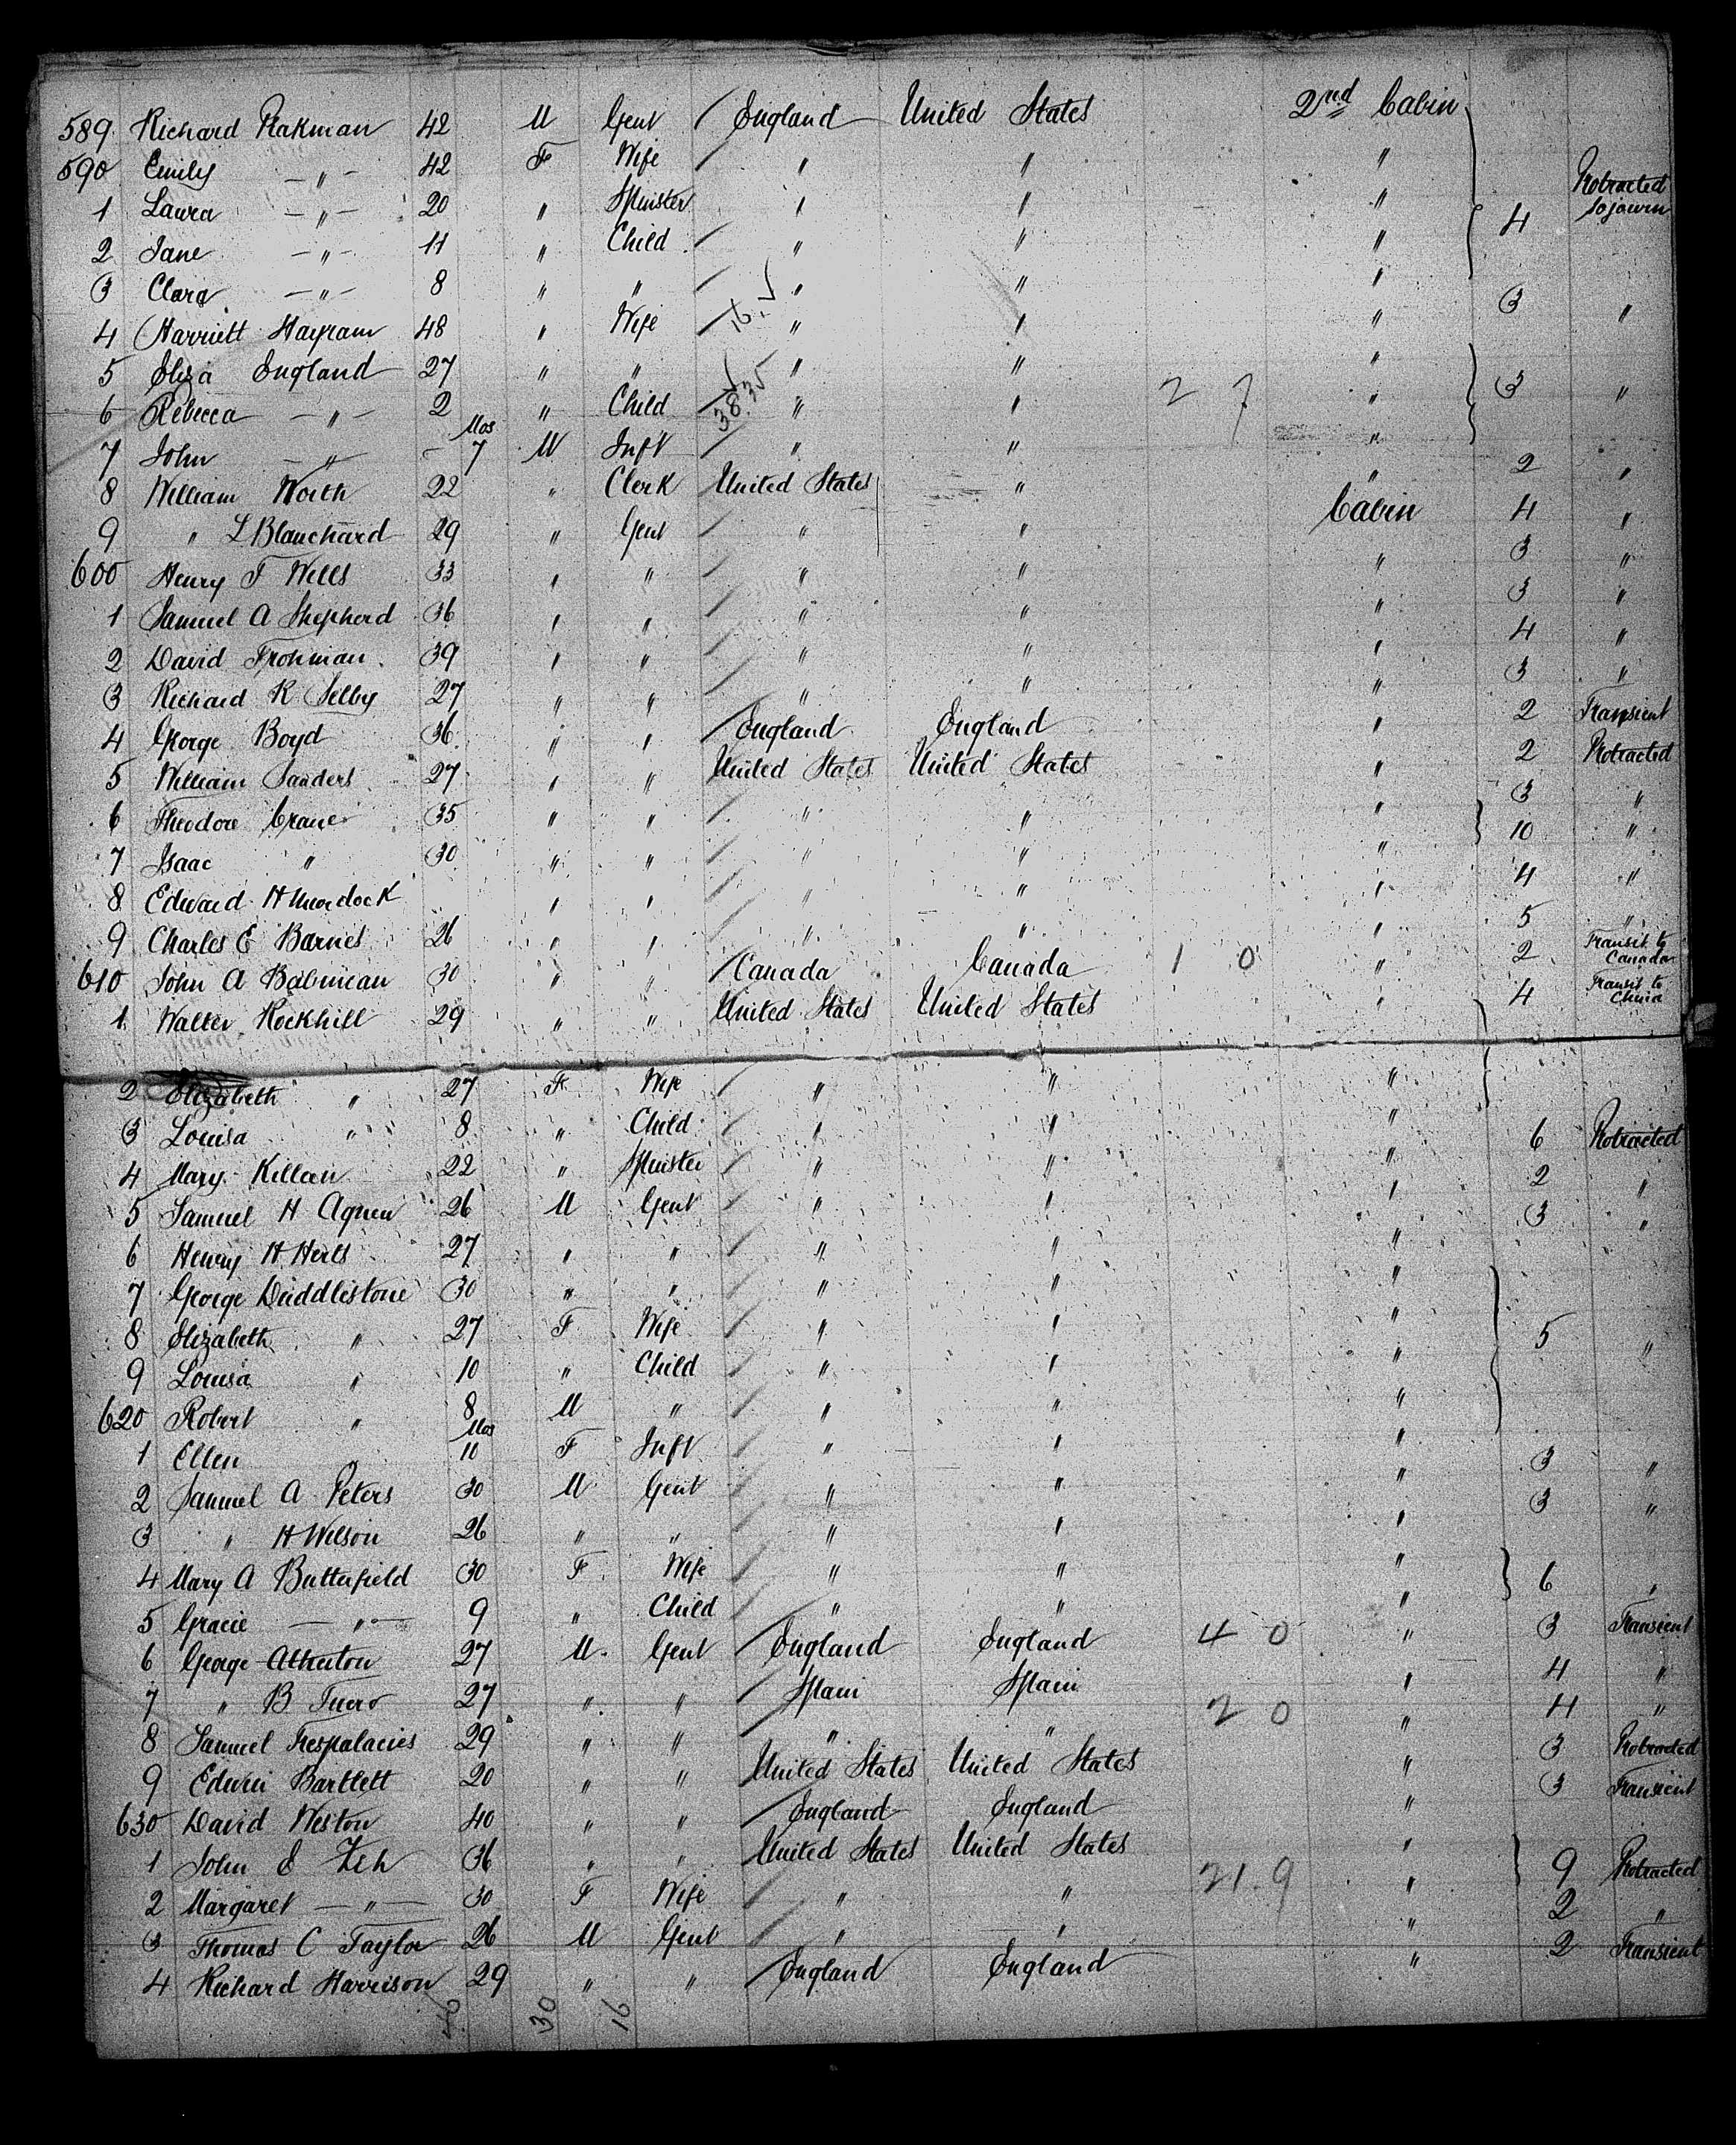 589 Richard Rakman 42 M Gent England United States 2nd Cabin
590 Emily " 42 F Wife " " " Protracted
1 Laura " 20 " Spinster " " " 4 Sojourn
2 Jane " 11 " Child " " "
3 Clara " 8 " " " " "
4 Harriett 48 " Wife 16. " " " 3 "
5 Eliza England 27 " " " " "
6 Rebecca " 2 " Child 38.35 " " 2 7 " 3 "
7 John " - Mos 7 M Inft " " "
8 William North 22 " Clerk United States " " 2 "
9 " L Blanchard 29 " Gent " " Cabin 4 "
600 Henry F Wells 33 " " " " " 3 "
1 Samuel A Shepherd 36 " " " " " 3 "
2 David Frohman 39 " " " " " 4 "
3 Richard R Selby 27 " " " " " 3 "
4 George Boyd 36 " " England England " 2 Transient
5 William Sanders 27 " " United States United States " 2 Protracted
6 Theodore Crane 35 " " " " " 3 "
7 Isaac " 30 " " " " " 10 "
8 Edward H Murdock " " " " " 4 "
9 Charles E Barnes 26 " " " " " 5 "
610 John A 30 " " Canada Canada 1 0 " 2 Transit to Canada
1 Walter Rockhill 29 " " United States United States " 4 Transit to China
2 Elizabeth " 27 F Wife " " "
3 Louisa " 8 " Child " " " 6 Protracted
4 Mary Killean 22 " Spinster " " " 2 "
5 Samuel H Agnew 26 M Gent " " " 3 "
6 Henry H Herts 27 " " " " "
7 George Duddlestone 30 " " " " "
8 Elizabeth " 27 F Wife " " " 5 "
9 Louisa " 10 " Child " " "
620 Robert " 8 M " " " "
1 Ellen " Mos 10 F Inft " " " 3 "
2 Samuel A Peters 30 M Gent " " " 3 "
3 " H Wilson 26 " " " " "
4 Mary A Butterfield 30 F Wife " " " 6 "
5 Gracie " 9 " Child " " "
6 George Atherton 27 M Gent England England 4 0 " 3 Transient
7 " B Tuero 27 " " Spain Spain " 4 "
8 Samuel Trespalacies 29 " " " " 2 0 " 4 "
9 Edwin Bartlett 20 " " United States United States " 3 Protracted
630 David Weston 40 " " England England " 3 Transient
1 John E Zeh 36 " " United States United States "
2 Margaret " 30 F Wife " " 21.9 " 9 Protracted
3 Thomas C Taylor 26 M Gent " " " 2 "
4 Richard Harrison 29 " " England England " 2 Transient
46 30 16